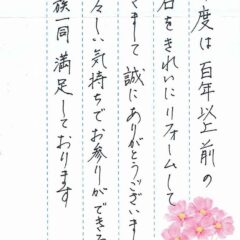 度は百年以上前の
石をきれいにリフォームして
まして 誠にありがとうございま
々しい気持ちでお参りができる
族一同 満足しております